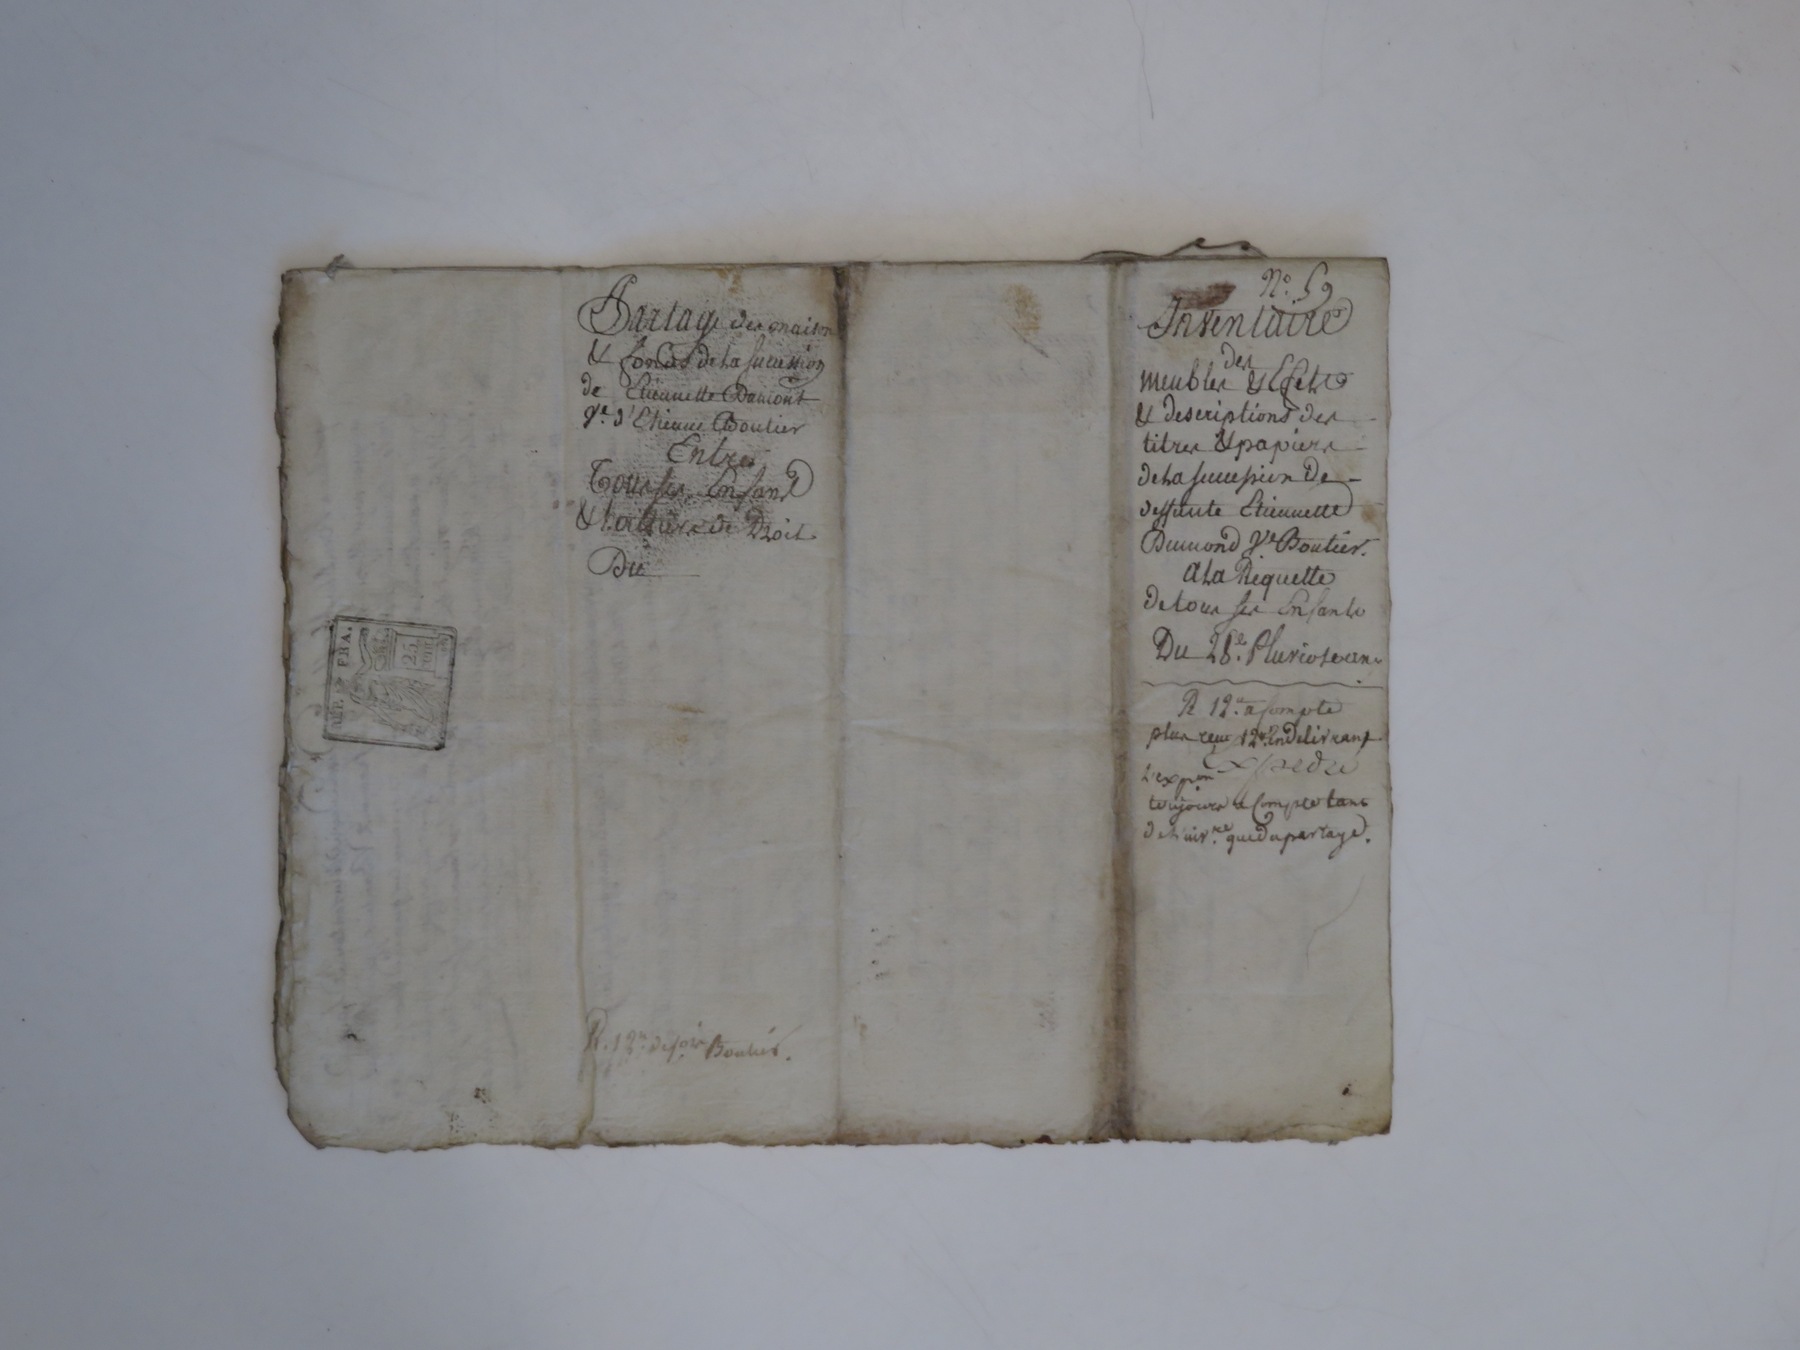 REP. FRA.
25
Partage des maison
& fonds de la succession
de Etiennette Dumont
Ve. d'Etienne Boutier
Entre
Tous ses Enfans
& ... de Droit
Du
R. 12# de ... Boutier.
No. 59
Inventaire
des
meubles & Effets
& descriptions des
titres & papiers
de la succession de
deffunte Etiennette
Dumond Ve. Boutier.
a la Requette
de tous ses Enfants
Du 28e. Pluviose an
R 12# a compte
plus reçu 12# En delivrant
Expedié
L'expon
toujours a Compte tant
de L'invre. que du partage.